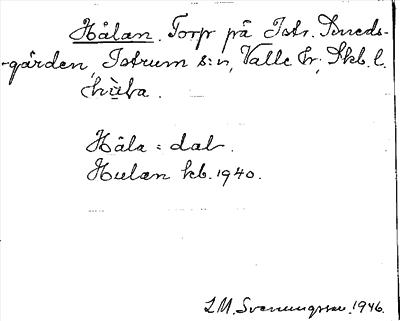 Hålan. Torp på Istr. Smeds-
-gården, Istrum s:n, Valle hr, Skb. l.

Håla = dal.
Hulan kb. 1940.
L M. Svenungsson. 1946.